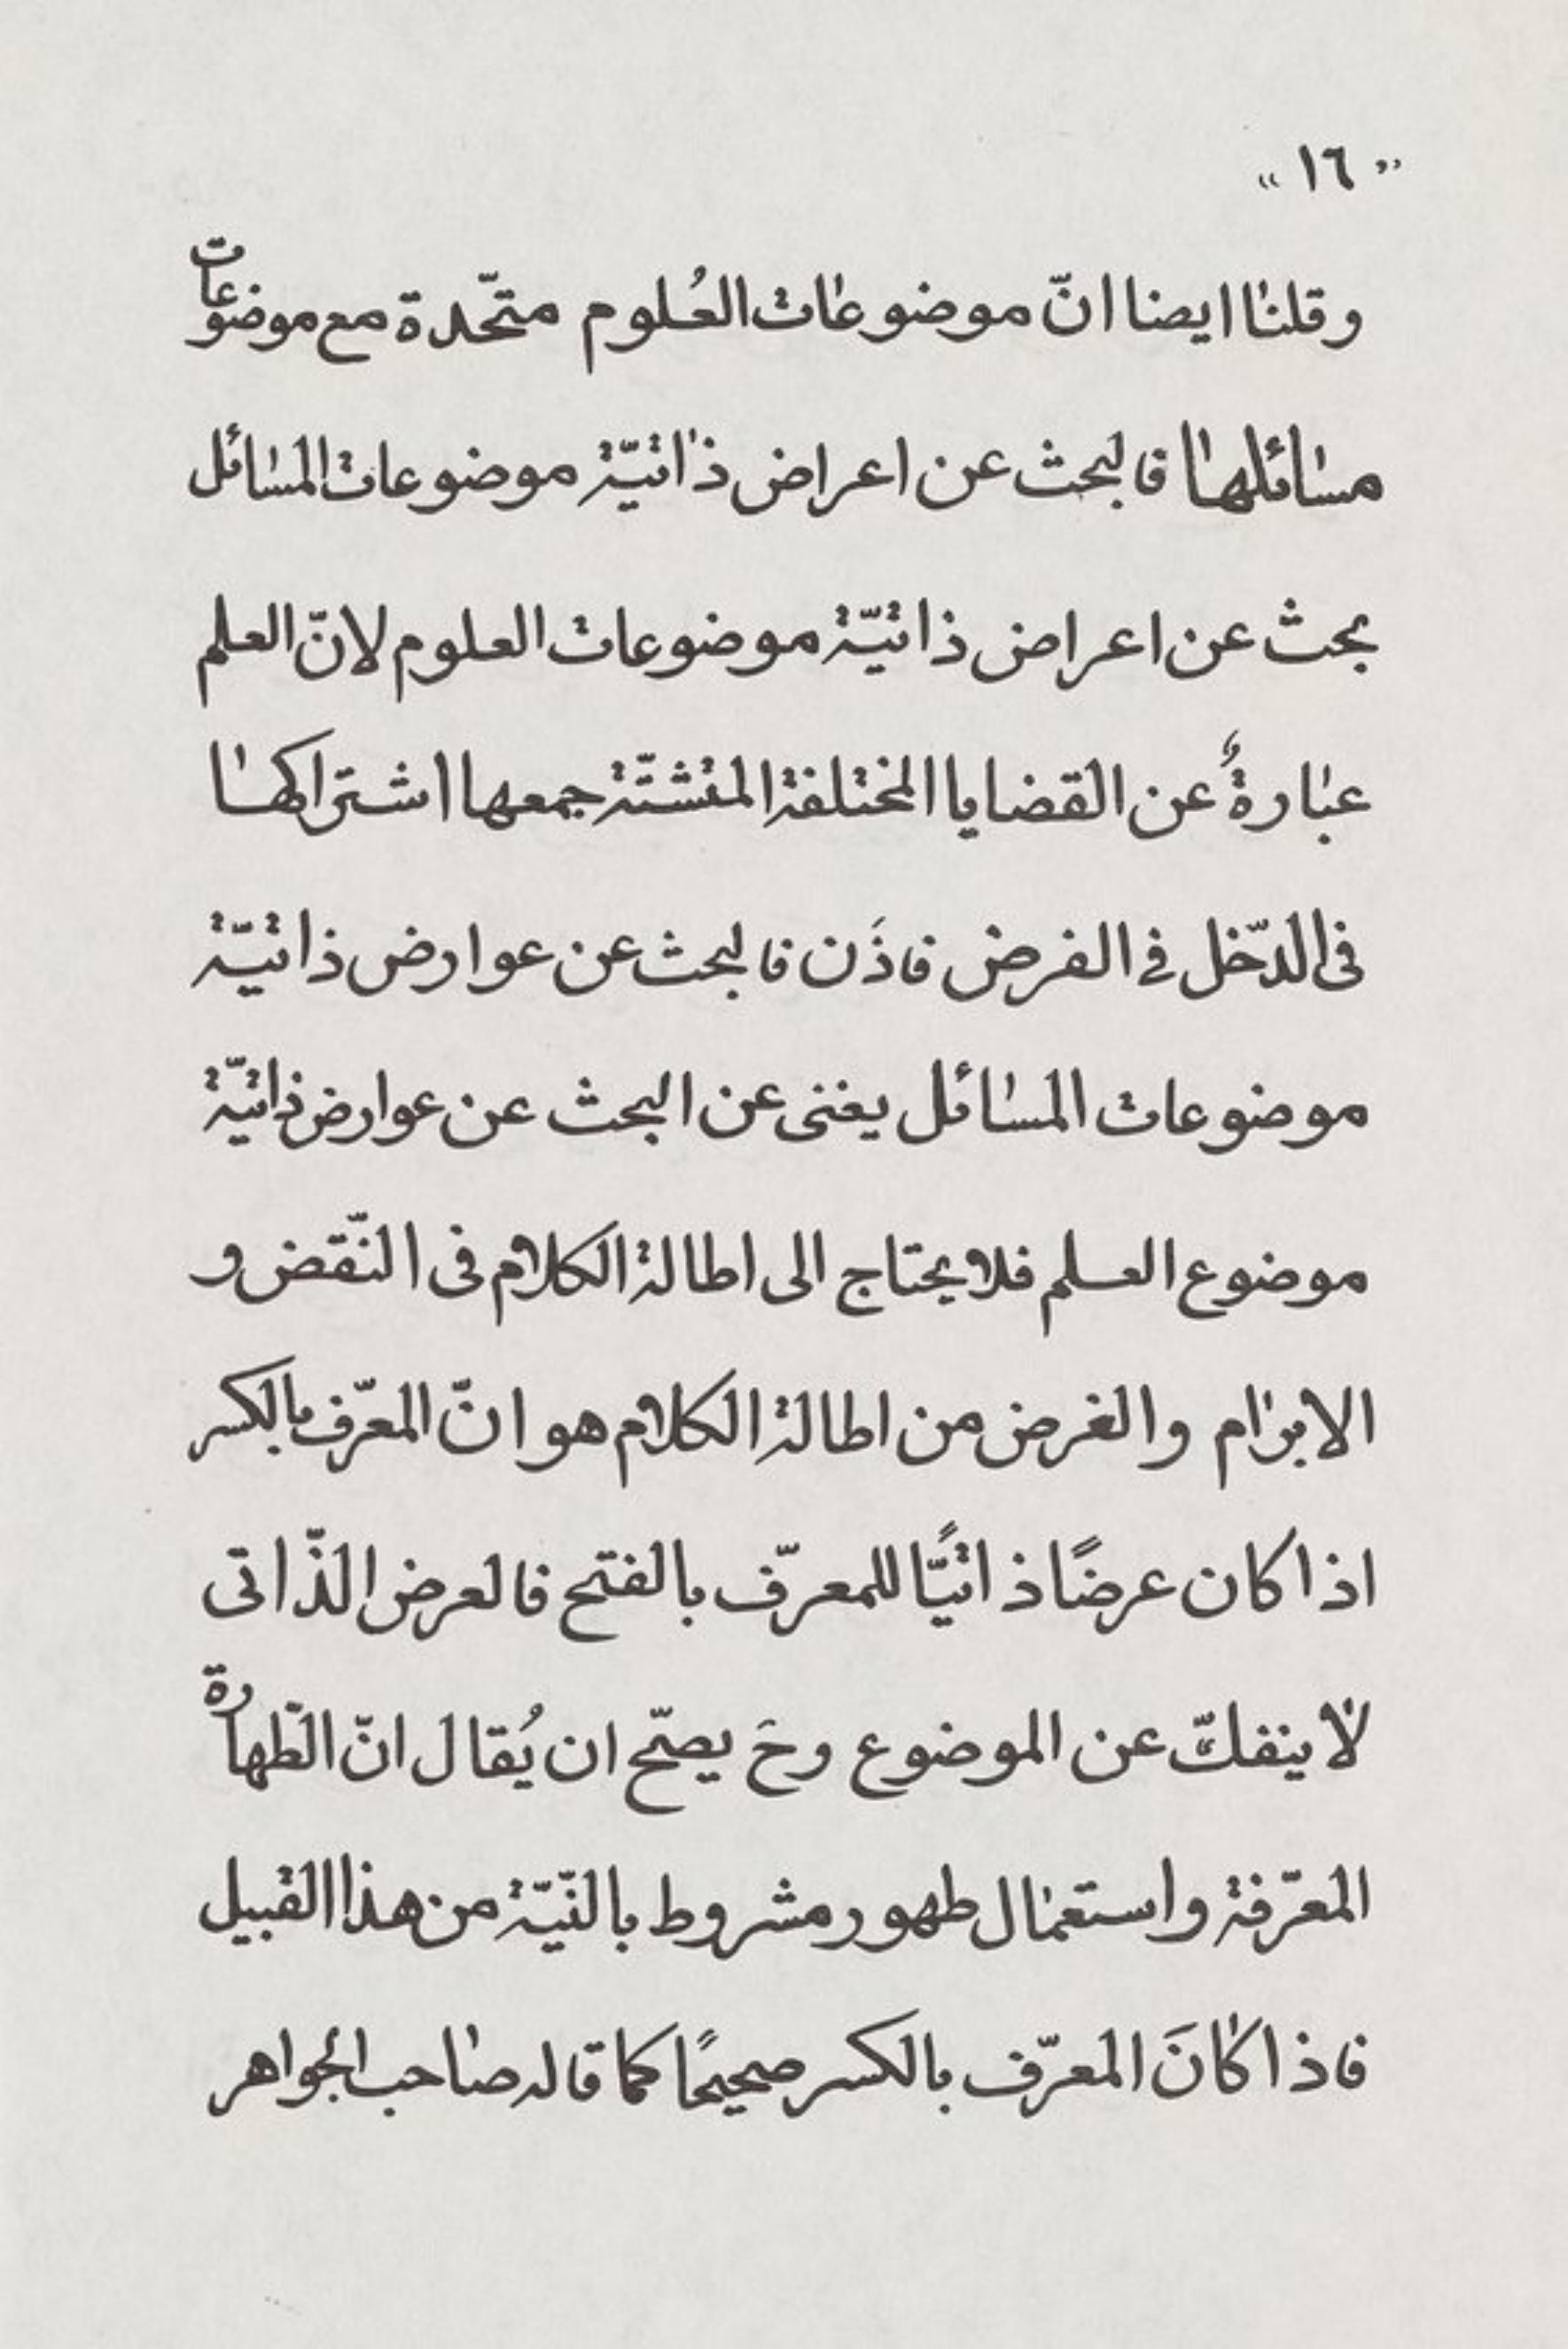 « ١٦ »
وقلنا ايضا انّ موضوعات العُلوم متّحدة مع موضوعات
مسائلها فالبحث عن اعراض ذاتيّة موضوعات المسائل
بحث عن اعراض ذاتيّة موضوعات العلوم لانّ العلم
عبارةٌ عن القضايا المختلفة المتشتّة جمعها اشتراكها
فى الدّخل فى الغرض فاذَن فالبحث عن عوارض ذاتيّة
موضوعات المسائل يغنى عن البحث عن عوارض ذاتيّة
موضوع العلم فلا يحتاج الى اطالة الكلام فى النّقض و
الابرام والغرض من اطالة الكلام هو انّ المعرّف بالكسر
اذا كان عرضًا ذاتيًّا للمعرّف بالفتح فالعرض الذّاتى
لا ينفكّ عن الموضوع وحَ يصحّ ان يُقال انّ الطّهارة
المعرّفة واستعمال طهور مشروط بالنّيّة من هذا القبيل
فاذا كانَ المعرّف بالكسر صحيحًا كما قاله صاحب الجواهر